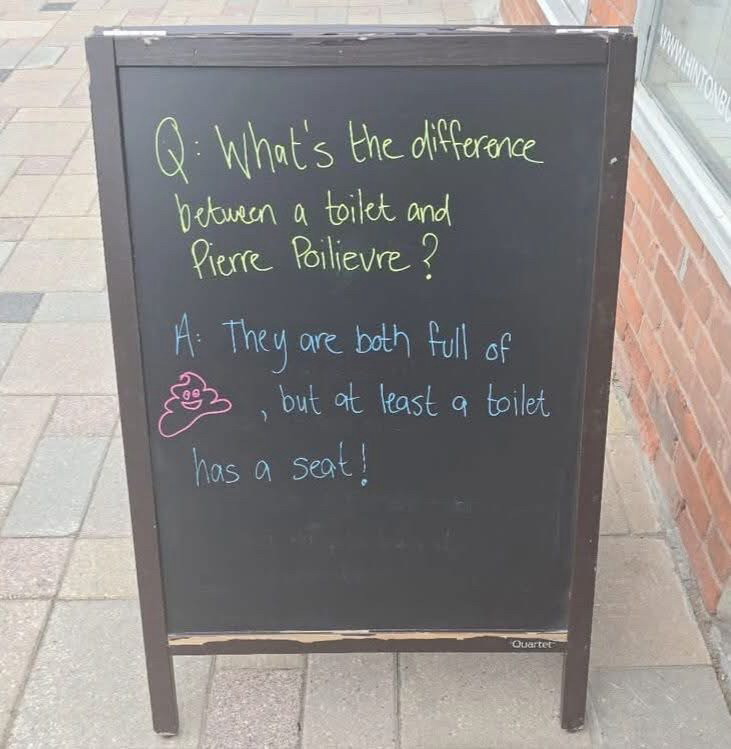 Q: What's the difference
between a toilet and
Pierre Poilievre?
A: They are both full of
, but at least a toilet
has a seat!
Quartet
WWW.HINTONBU